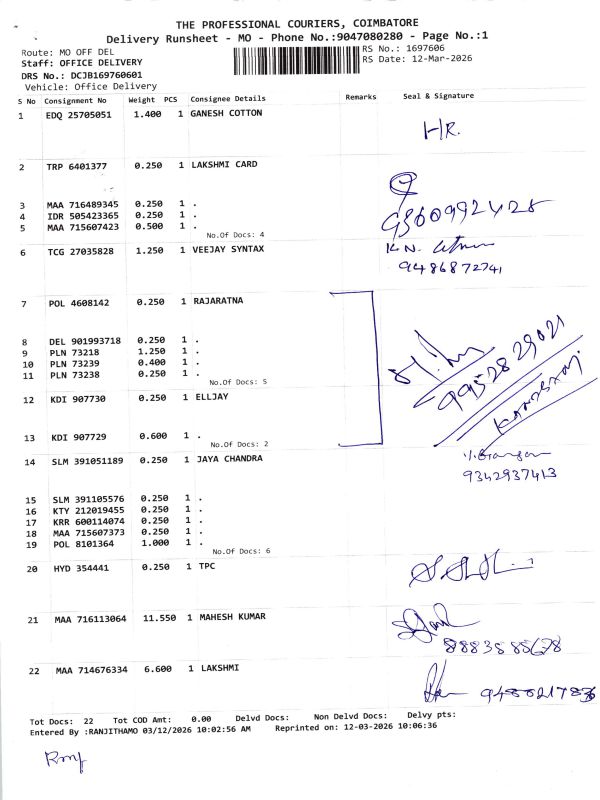 THE PROFESSIONAL COURIERS, COIMBATORE
Delivery Runsheet - MO - Phone No.:9047080280 - Page No.:1
Route: MO OFF DEL
RS No.: 1697606
Staff: OFFICE DELIVERY
RS Date: 12-Mar-2026
DRS No.: DCJB169760601
Vehicle: Office Delivery
S No Consignment No Weight PCS Consignee Details Remarks Seal & Signature
1 EDQ 25705051 1.400 1 GANESH COTTON
HR.
2 TRP 6401377 0.250 1 LAKSHMI CARD
3 MAA 716489345 0.250 1 .
4 IDR 505423365 0.250 1 .
5 MAA 715607423 0.500 1 .
No.Of Docs: 4
6 TCG 27035828 1.250 1 VEEJAY SYNTAX
K.N.
9486872741
7 POL 4608142 0.250 1 RAJARATNA
8 DEL 901993718 0.250 1 .
9 PLN 73218 1.250 1 .
10 PLN 73239 0.400 1 .
11 PLN 73238 0.250 1 .
No.Of Docs: 5
9952829021
12 KDI 907730 0.250 1 ELLJAY
13 KDI 907729 0.600 1 .
No.Of Docs: 2
14 SLM 391051189 0.250 1 JAYA CHANDRA
9342937413
15 SLM 391105576 0.250 1 .
16 KTY 212019455 0.250 1 .
17 KRR 600114074 0.250 1 .
18 MAA 715607373 0.250 1 .
19 POL 8101364 1.000 1 .
No.Of Docs: 6
20 HYD 354441 0.250 1 TPC
21 MAA 716113064 11.550 1 MAHESH KUMAR
8883585678
22 MAA 714676334 6.600 1 LAKSHMI
Tot Docs: 22 Tot COD Amt: 0.00 Delvd Docs: Non Delvd Docs: Delvy pts:
Entered By :RANJITHAMO 03/12/2026 10:02:56 AM Reprinted on: 12-03-2026 10:06:36